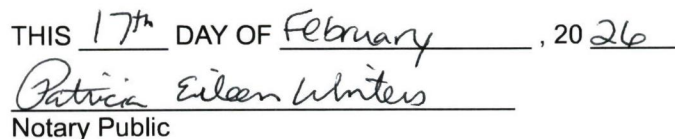 THIS 17th DAY OF February, 20 26
Patricia Eileen Winters
Notary Public